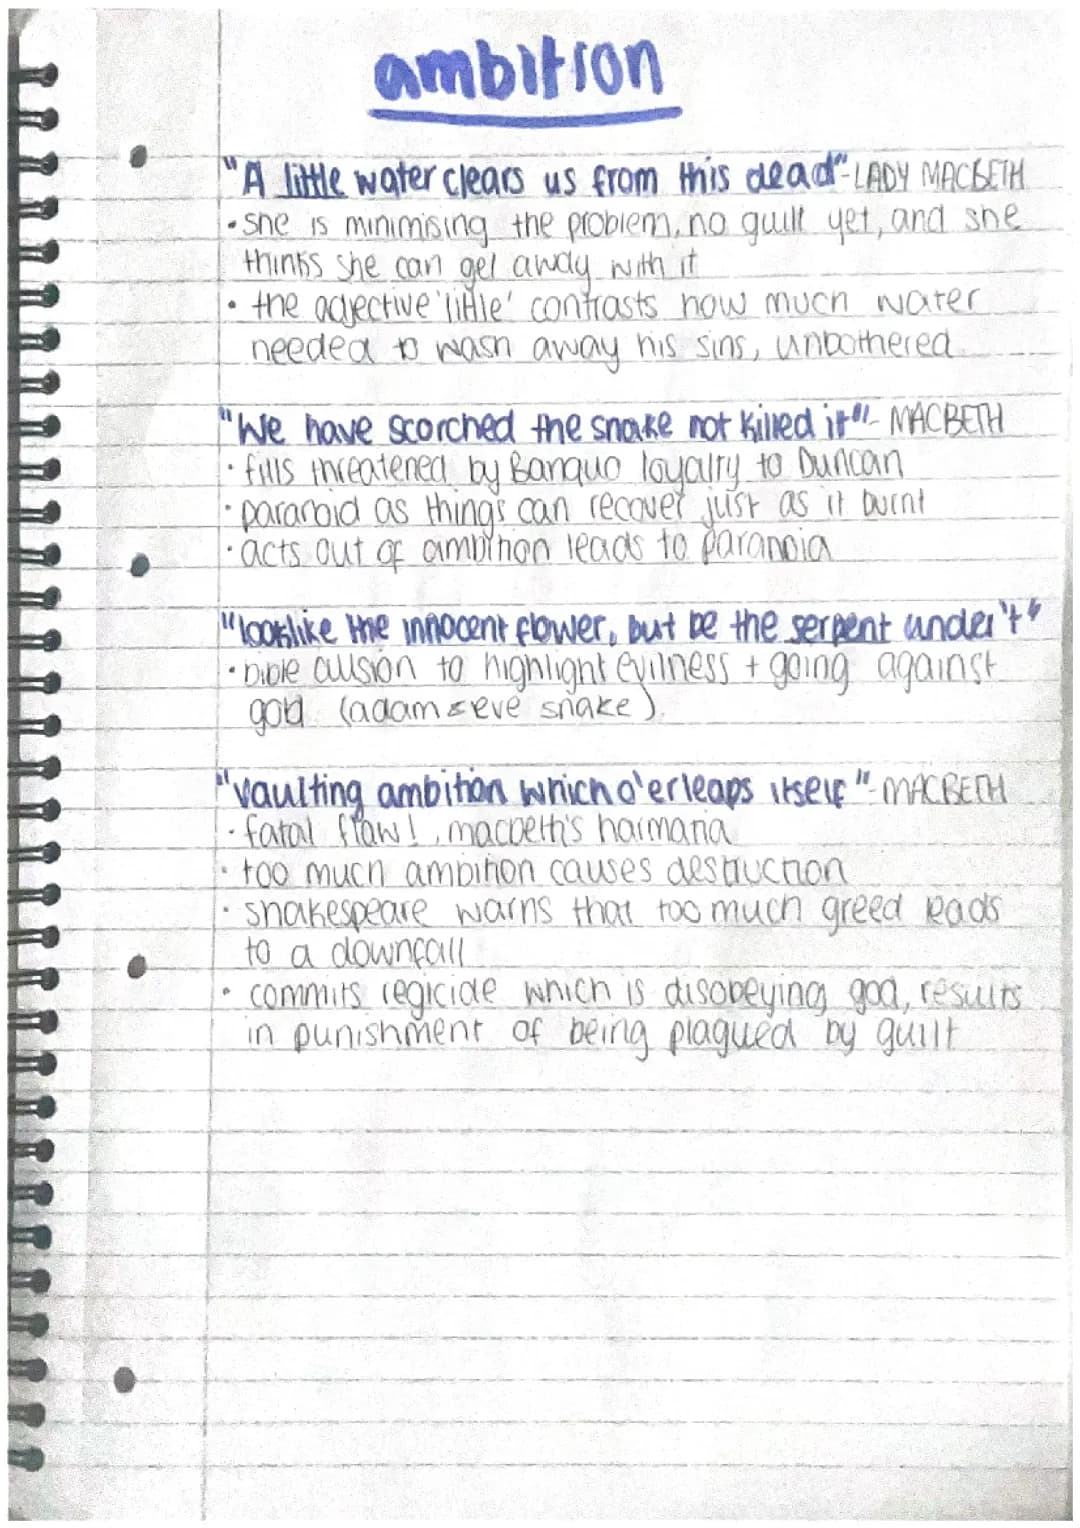 ambition
"A little water clears us from this dead"-LADY MACBETH
• she is minimising the problem, no guilt yet, and she
thinks she can get away with it
• the adjective 'little' contrasts how much water
needed to wash away his sins, unbothered
"We have scorched the snake not killed it"- MACBETH
• fills threatened by Banquo loyalty to Duncan
• paranoid as things can recover just as it burnt
• acts out of ambition leads to paranoia
"look like the innocent flower, but be the serpent under't"
• bible allusion to highlight evilness + going against
god (adam & eve snake).
"vaulting ambition which o'erleaps itself"- MACBETH
• fatal flaw!, macbeth's harmatia
• too much ambition causes destruction
• shakespeare warns that too much greed leads
to a downfall
• commits regicide which is disobeying god, results
in punishment of being plagued by guilt